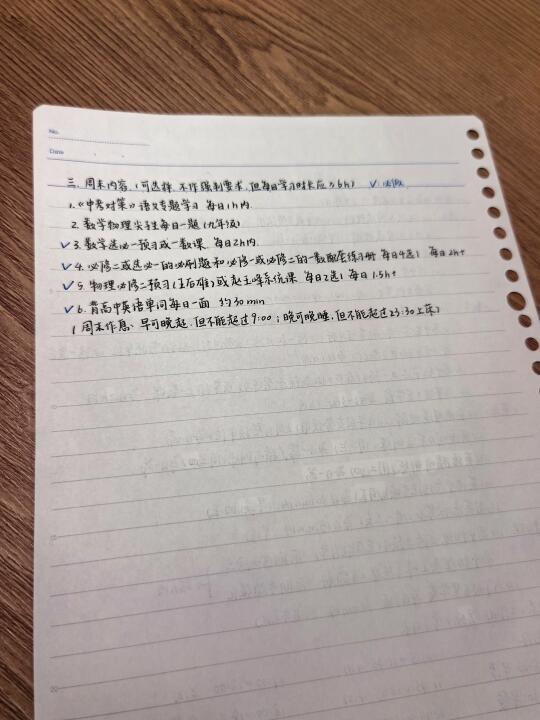 No.
Date
三. 周末内容. (可选择. 不作强制要求. 但每日学习时长应≥6h) ✓: 必做
1.《中考对策》语文专题学习 每日1h内
2. 数学物理尖子生每日一题 (九年级)
✓ 3. 数学选必一预习或一数课 每日2h内
✓ 4. 必修二或选必一的必刷题和必修一或必修二的一数配套练习册 每日4选1 每日2h+
✓ 5. 物理必修二预习(王后雄)或赵玉峰系统课 每日2选1 每日1.5h+
✓ 6. 背高中英语单词每日一面 约30min
(周末作息: 早可晚起. 但不能超过9:00; 晚可晚睡, 但不能超过23:30上床)